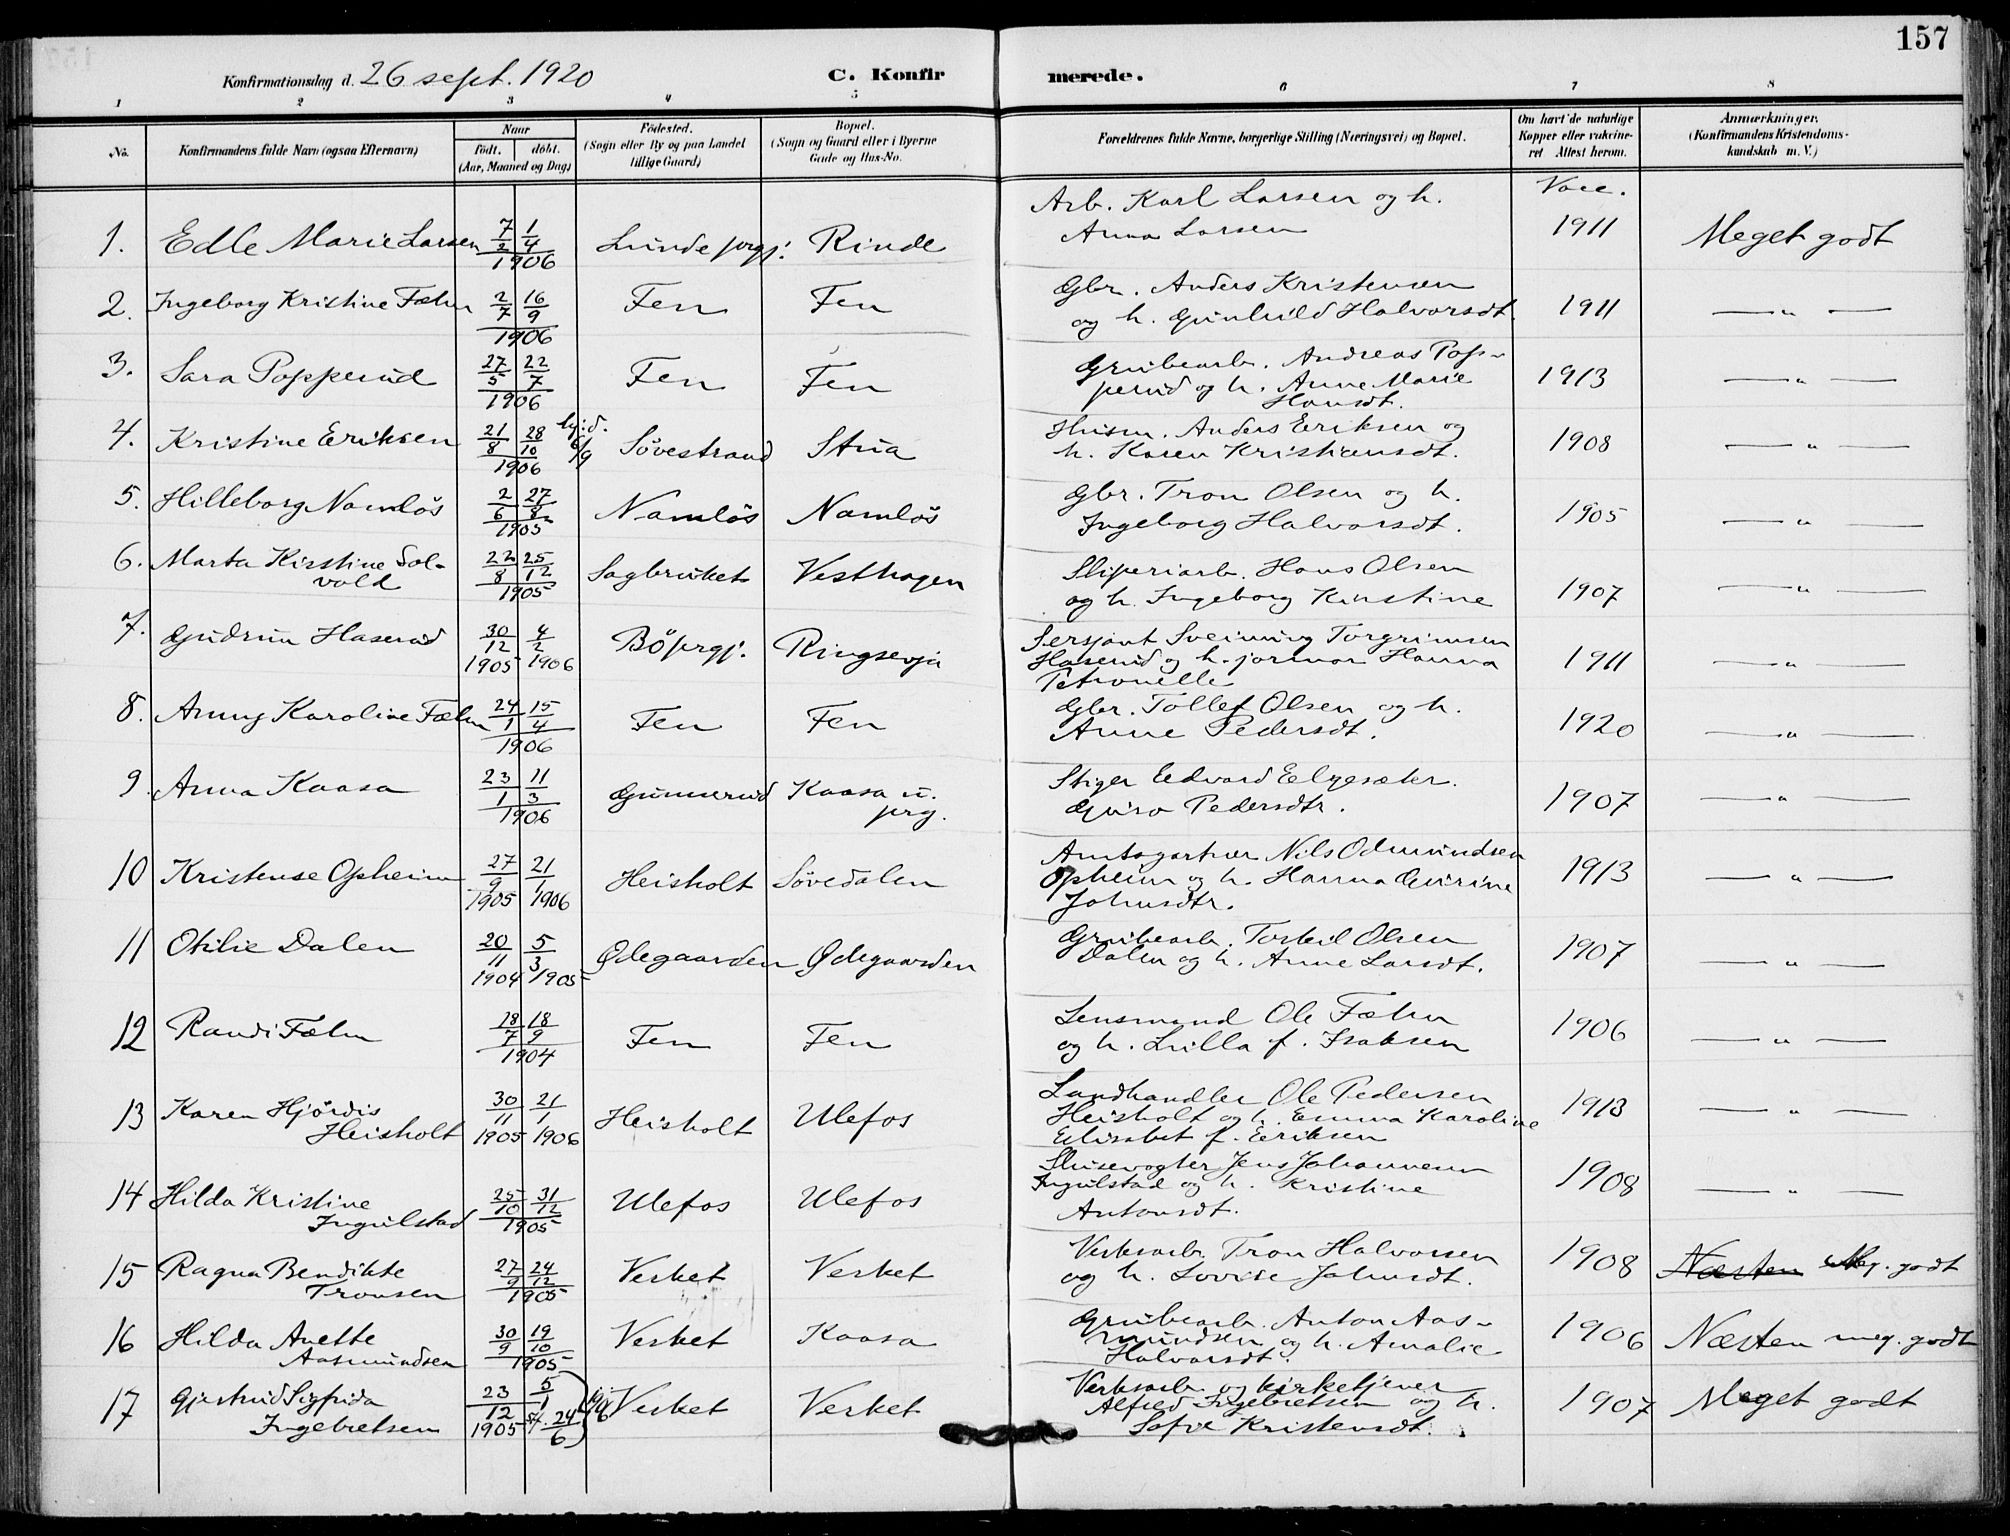 157
Konfirmationsdag d. 26 sept. 1920 C. Konfir merede.
1 2 3 4 5 6 7 8
No. Konfirmandens fulde Navn (ogsaa Efternavn) Naar født. døbt. (Aar, Maaned og Dag) Fødested. (Sogn eller By og paa Landet tillige Gaard) Bopæl. (Sogn og Gaard eller i Byerne Gade og Hus-No. Forældrenes fulde Navne, borgerlige Stilling (Næringsvei) og Bopæl. Om havt de naturlige Kopper eller vakcineret Attest herom. Anmærkninger. (Konfirmandens Kristendomskundskab m. V.)
Vacc.
1. Edle Marie Larsen 7/2 1/4 1906 Lunde prgj. Rinde Arb. Karl Larsen og h. Anna Larsen 1911 Meget godt
2. Ingeborg Kristine Fæhn 2/7 16/9 1906 Fen Fen Gbr. Anders Kristensen og h. Gunhild Halvorsdt. 1911 — " —
3. Sara Popperud 27/5 22/7 1906 Fen Fen Grubearb. Andreas Popperud og h. Anne Marie Hansdt. 1913 — " —
4. Kristine Eriksen 21/8 28/10 1906 hj:d. 6/9 Søvestrand Stua Husm. Anders Eriksen og h. Karen Kristiansdt. 1908 — " —
5. Hilleborg Namløs 2/6 27/8 1905 Namløs Namløs Gbr. Tron Olsen og h. Ingeborg Halvorsdt. 1905 — " —
6. Marta Kirstine Solvold 22/8 25/12 1905 Sagbruket Vesthagen Sliperiarb. Hans Olsen og h. Ingeborg Kirstine 1907 — " —
7. Gudrun Haserud 30/12 1905 4/2 1906 Bö prgj. Ringsevja Sersjant Sveinung Torgrimsen Haserud og h. jormor Hanna Petronelle 1911 — " —
8. Anny Karoline Fæhn 24/1 15/4 1906 Fen Fen Gbr. Tollef Olsen og h. Anne Pedersdt. 1920 — " —
9. Anna Kaasa 23/1 11/3 1906 Gunnerud Kaasa u. prg. Stiger Edvard Elgesæter. Guro Pedersdtr. 1907 — " —
10 Kristense Opheim 27/9 1905 21/1 1906 Heisholt Søvedalen Amtsgartner Nils Odmundsen Opheim og h. Hanna Gurine Johnsdtr. 1913 — " —
11 Otilie Dalen 20/11 1904 5/3 1905 Ødegaarden Ødegaarden Grubearb. Torkil Olsen Dalen og h. Anne Larsdt. 1907 — " —
12 Randi Fæhn 18/7 18/9 1904 Fen Fen Lensmand Ole Fæhn og h. Lulla f. Isaksen 1906 — " —
13 Karen Hjördis Heisholt 30/11 1905 21/1 1906 Heisholt Ulefos Landhandler Ole Pedersen Heisholt og h. Emma Karoline Elisabet f. Eriksen 1913 — " —
14 Hilda Kristine Ingulstad 25/10 31/12 1905 Ulefos Ulefos Slusevogter Jens Johannesen Ingulstad og h. Kristine Antonsdt. 1908 — " —
15 Ragna Bendikte Tronsen 27/9 24/12 1905 Verket Verket Verksarb. Tron Halvorsen og h. Lovise Johnsdt. 1908 Næsten Meg. godt
16 Hilda Anette Aasmundsen 30/9 19/10 1905 Verket Kaasa Grubearb. Anton Aasmundsen og h. Amalie Halvorsdt. 1906 Næsten meg. godt
17 Gjertrud Sigfrida Ingebretsen 23/12 1905 5/1 st. 24/6 Verket Verket Verksarb. og kirketjener Alfred Ingebretsen og h. Sofie Kristensdt. 1907 Meget godt